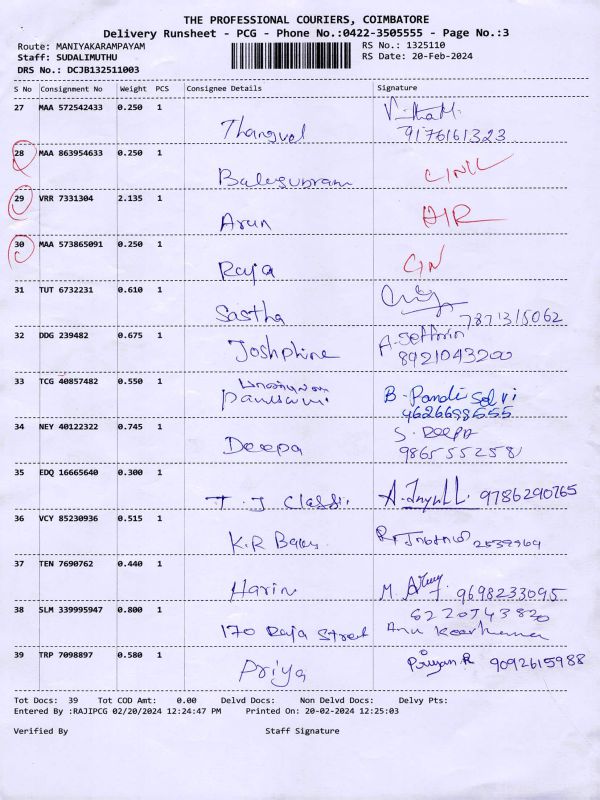 THE PROFESSIONAL COURIERS, COIMBATORE
Delivery Runsheet - PCG - Phone No.:0422-3505555 - Page No.:3
Route: MANIYAKARAMPAYAM RS No.: 1325110
Staff: SUDALIMUTHU RS Date: 20-Feb-2024
DRS No.: DCJB132511003
S No Consignment No Weight PCS Consignee Details Signature
27 MAA 572542433 0.250 1
Thangvel 9176161323
28 MAA 863954633 0.250 1
29 VRR 7331304 2.135 1
Arun
30 MAA 573865091 0.250 1
Raja
31 TUT 6732231 0.610 1
Sastha 7871315062
32 DDG 239482 0.675 1
Joshphine 8921043200
33 TCG 40857482 0.550 1
B. Pandi Selvi
4626698555
34 NEY 40122322 0.745 1 S. DEEPA
Deepa 9865552581
35 EDQ 16665640 0.300 1
9786290765
36 VCY 85230936 0.515 1
K.R
37 TEN 7690762 0.440 1
Harin M. 9698233095
38 SLM 339995947 0.800 1
170 Raja Street
39 TRP 7098897 0.580 1
Priya 9092615988
Tot Docs: 39 Tot COD Amt: 0.00 Delvd Docs: Non Delvd Docs: Delvy Pts:
Entered By :RAJIPCG 02/20/2024 12:24:47 PM Printed On: 20-02-2024 12:25:03
Verified By Staff Signature